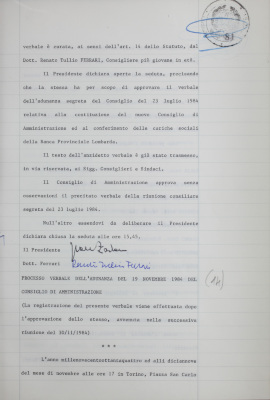 verbale è curata, ai sensi dell'art. 14 dello Statuto, dal
Dott. Renato Tullio FERRARI, Consigliere più giovane in età.
Il Presidente dichiara aperta la seduta, precisando
che la stessa ha per scopo di approvare il verbale
dell'adunanza segreta del Consiglio del 23 luglio 1984
relativa alla costituzione del nuovo Consiglio di
Amministrazione ed al conferimento delle cariche sociali
della Banca Provinciale Lombarda.
Il testo dell'anzidetto verbale è già stato trasmesso,
in via riservata, ai Sigg. Consiglieri e Sindaci.
Il Consiglio di Amministrazione approva senza
osservazioni il precitato verbale della riunione consiliare
segreta del 23 luglio 1984.
Null'altro essendovi da deliberare il Presidente
dichiara chiusa la seduta alle ore 15,45.
Il Presidente
Dott. Ferrari
PROCESSO VERBALE DELL'ADUNANZA DEL 19 NOVEMBRE 1984 DEL
CONSIGLIO DI AMMINISTRAZIONE
(La registrazione del presente verbale viene effettuata dopo
l'approvazione dello stesso, avvenuta nella successiva
riunione del 20/12/1984)
* * *
L'anno millenovecentottantaquattro ed alli diciannove
del mese di novembre alle ore 17 in Torino, Piazza San Carlo